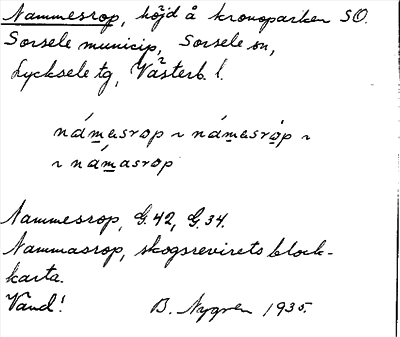 Nammesrop, höjd å kronoparken SO.
Sorsele municip, Sorsele sn,
Lycksele tg, Västerb. l.
námesrop ~ námesrȧp ~
~ námasrop
Nammesrop, G. 42, G. 34.
Nammasrop, skogsrevirets block-
karta.
Vänd! B. Nygren 1935.